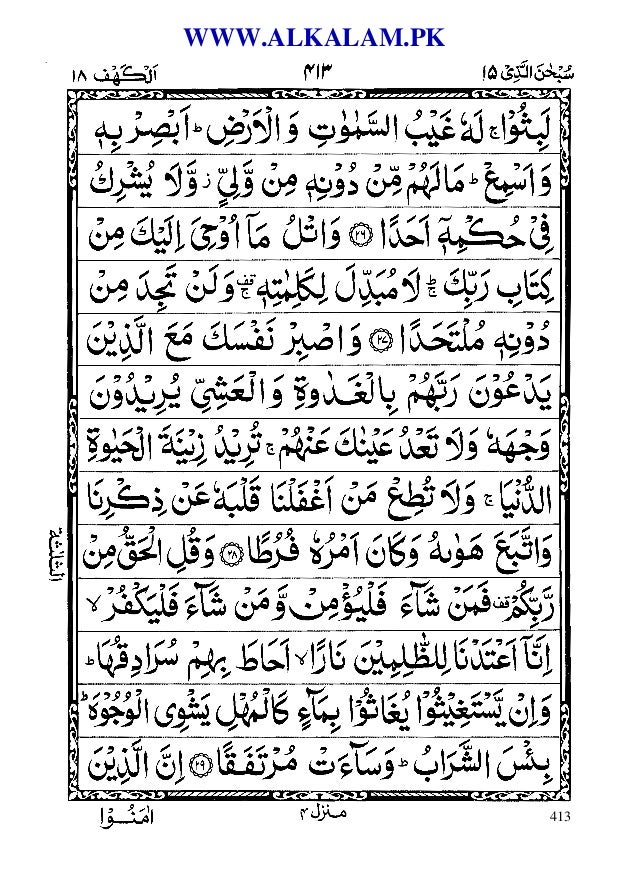 WWW.ALKALAM.PK
سُبْحٰنَ الَّذِیْۤ ١٥
٤١٣
اَلْكَهْف ١٨
لَبِثُوْا ۚ لَهٗ غَیْبُ السَّمٰوٰتِ وَ الْاَرْضِ ؕ اَبْصِرْ بِهٖ
وَ اَسْمِعْ ؕ مَا لَهُمْ مِّنْ دُوْنِهٖ مِنْ وَّلِیٍّ ؗ وَّ لَا یُشْرِكُ
فِیْ حُكْمِهٖۤ اَحَدًا ﴿٢٦﴾ وَ اتْلُ مَاۤ اُوْحِیَ اِلَیْكَ مِنْ
كِتَابِ رَبِّكَ ؕۚ لَا مُبَدِّلَ لِكَلِمٰتِهٖ ۚ۫ وَ لَنْ تَجِدَ مِنْ
دُوْنِهٖ مُلْتَحَدًا ﴿٢٧﴾ وَ اصْبِرْ نَفْسَكَ مَعَ الَّذِیْنَ
یَدْعُوْنَ رَبَّهُمْ بِالْغَدٰوةِ وَ الْعَشِیِّ یُرِیْدُوْنَ
وَجْهَهٗ وَ لَا تَعْدُ عَیْنٰكَ عَنْهُمْ ۚ تُرِیْدُ زِیْنَةَ الْحَیٰوةِ
الدُّنْیَا ۚ وَ لَا تُطِعْ مَنْ اَغْفَلْنَا قَلْبَهٗ عَنْ ذِكْرِنَا
وَ اتَّبَعَ هَوٰىهُ وَ كَانَ اَمْرُهٗ فُرُطًا ﴿٢٨﴾ وَ قُلِ الْحَقُّ مِنْ
رَّبِّكُمْ ۫ فَمَنْ شَآءَ فَلْیُؤْمِنْ وَّ مَنْ شَآءَ فَلْیَكْفُرْ ۙ
اِنَّاۤ اَعْتَدْنَا لِلظّٰلِمِیْنَ نَارًا ۙ اَحَاطَ بِهِمْ سُرَادِقُهَا ؕ
وَ اِنْ یَّسْتَغِیْثُوْا یُغَاثُوْا بِمَآءٍ كَالْمُهْلِ یَشْوِی الْوُجُوْهَ ؕ
بِئْسَ الشَّرَابُ ؕ وَ سَآءَتْ مُرْتَفَقًا ﴿٢٩﴾ اِنَّ الَّذِیْنَ
الثلٰثة
اٰمَنُوْا
منزل ٤
413